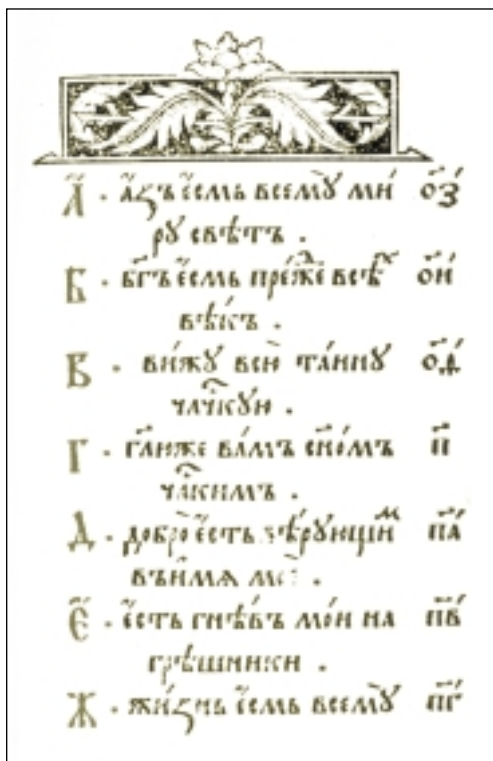 А҃ · а҆́зъ є҆́смь всемꙋ̀ ми́ ѻ҃з
рꙋ свѣ́тъ .
Б · бг҃ъ є҆́смь пре́жⷣе всѣ́ⷯ ѻ҃и
вѣ́къ .
В҃ · ви́жꙋ всю̀ та́йнꙋ ѻ҃ѳ
члч҃кꙋю .
Г҃ · гл҃ю́же ва́мъ сн҃ѡ́мъ п҃
чл҃кимъ .
Д҃ · добро̀ є҆́сть вѣ́рꙋющиⷨ п҃а
въ и҆́мѧ моѐ .
Є҃ · є҆́сть гнѣ́въ мо́й на п҃в
грѣ́шники .
Ж · жи́знь є҆́смь всемꙋ̀ п҃г